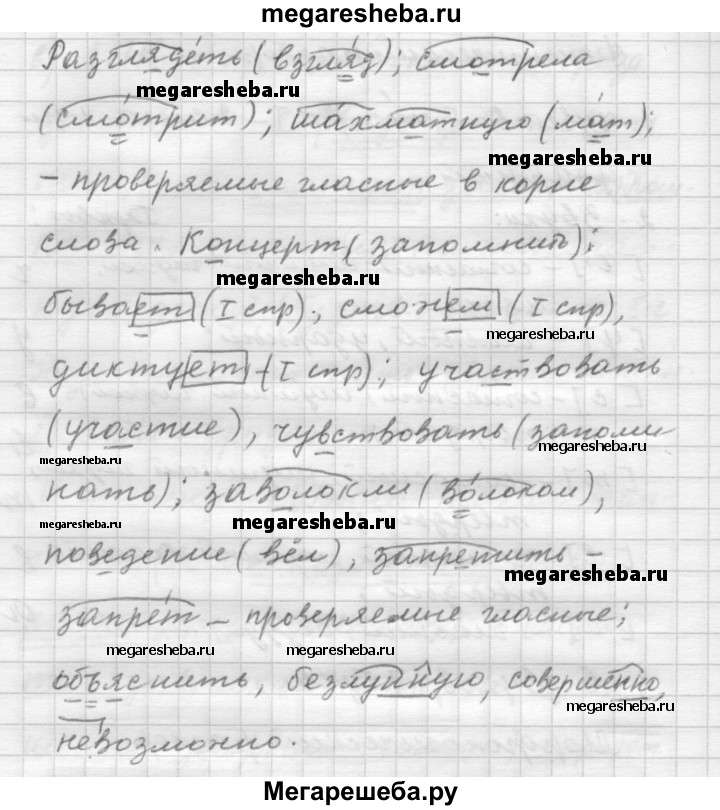 megaresheba.ru
Разглядеть (взгляд); смотрела
megaresheba.ru
(смотрит); шахматную (мат);
megaresheba.ru
- проверяемые гласные в корне
слова. Концерт (запомнить);
megaresheba.ru
бывает (I спр)., сможем (I спр),
megaresheba.ru
диктует - (I спр); участвовать
(участие), чувствовать (запоми
megaresheba.ru
megaresheba.ru
нать); заволокли (волоком),
megaresheba.ru
megaresheba.ru
поведение (вёл), запретить -
megaresheba.ru
запрет - проверяемые гласные;
megaresheba.ru
megaresheba.ru
объяснить, безлунную, совершенно,
megaresheba.ru
невозможно.
Мегарешеба.ру